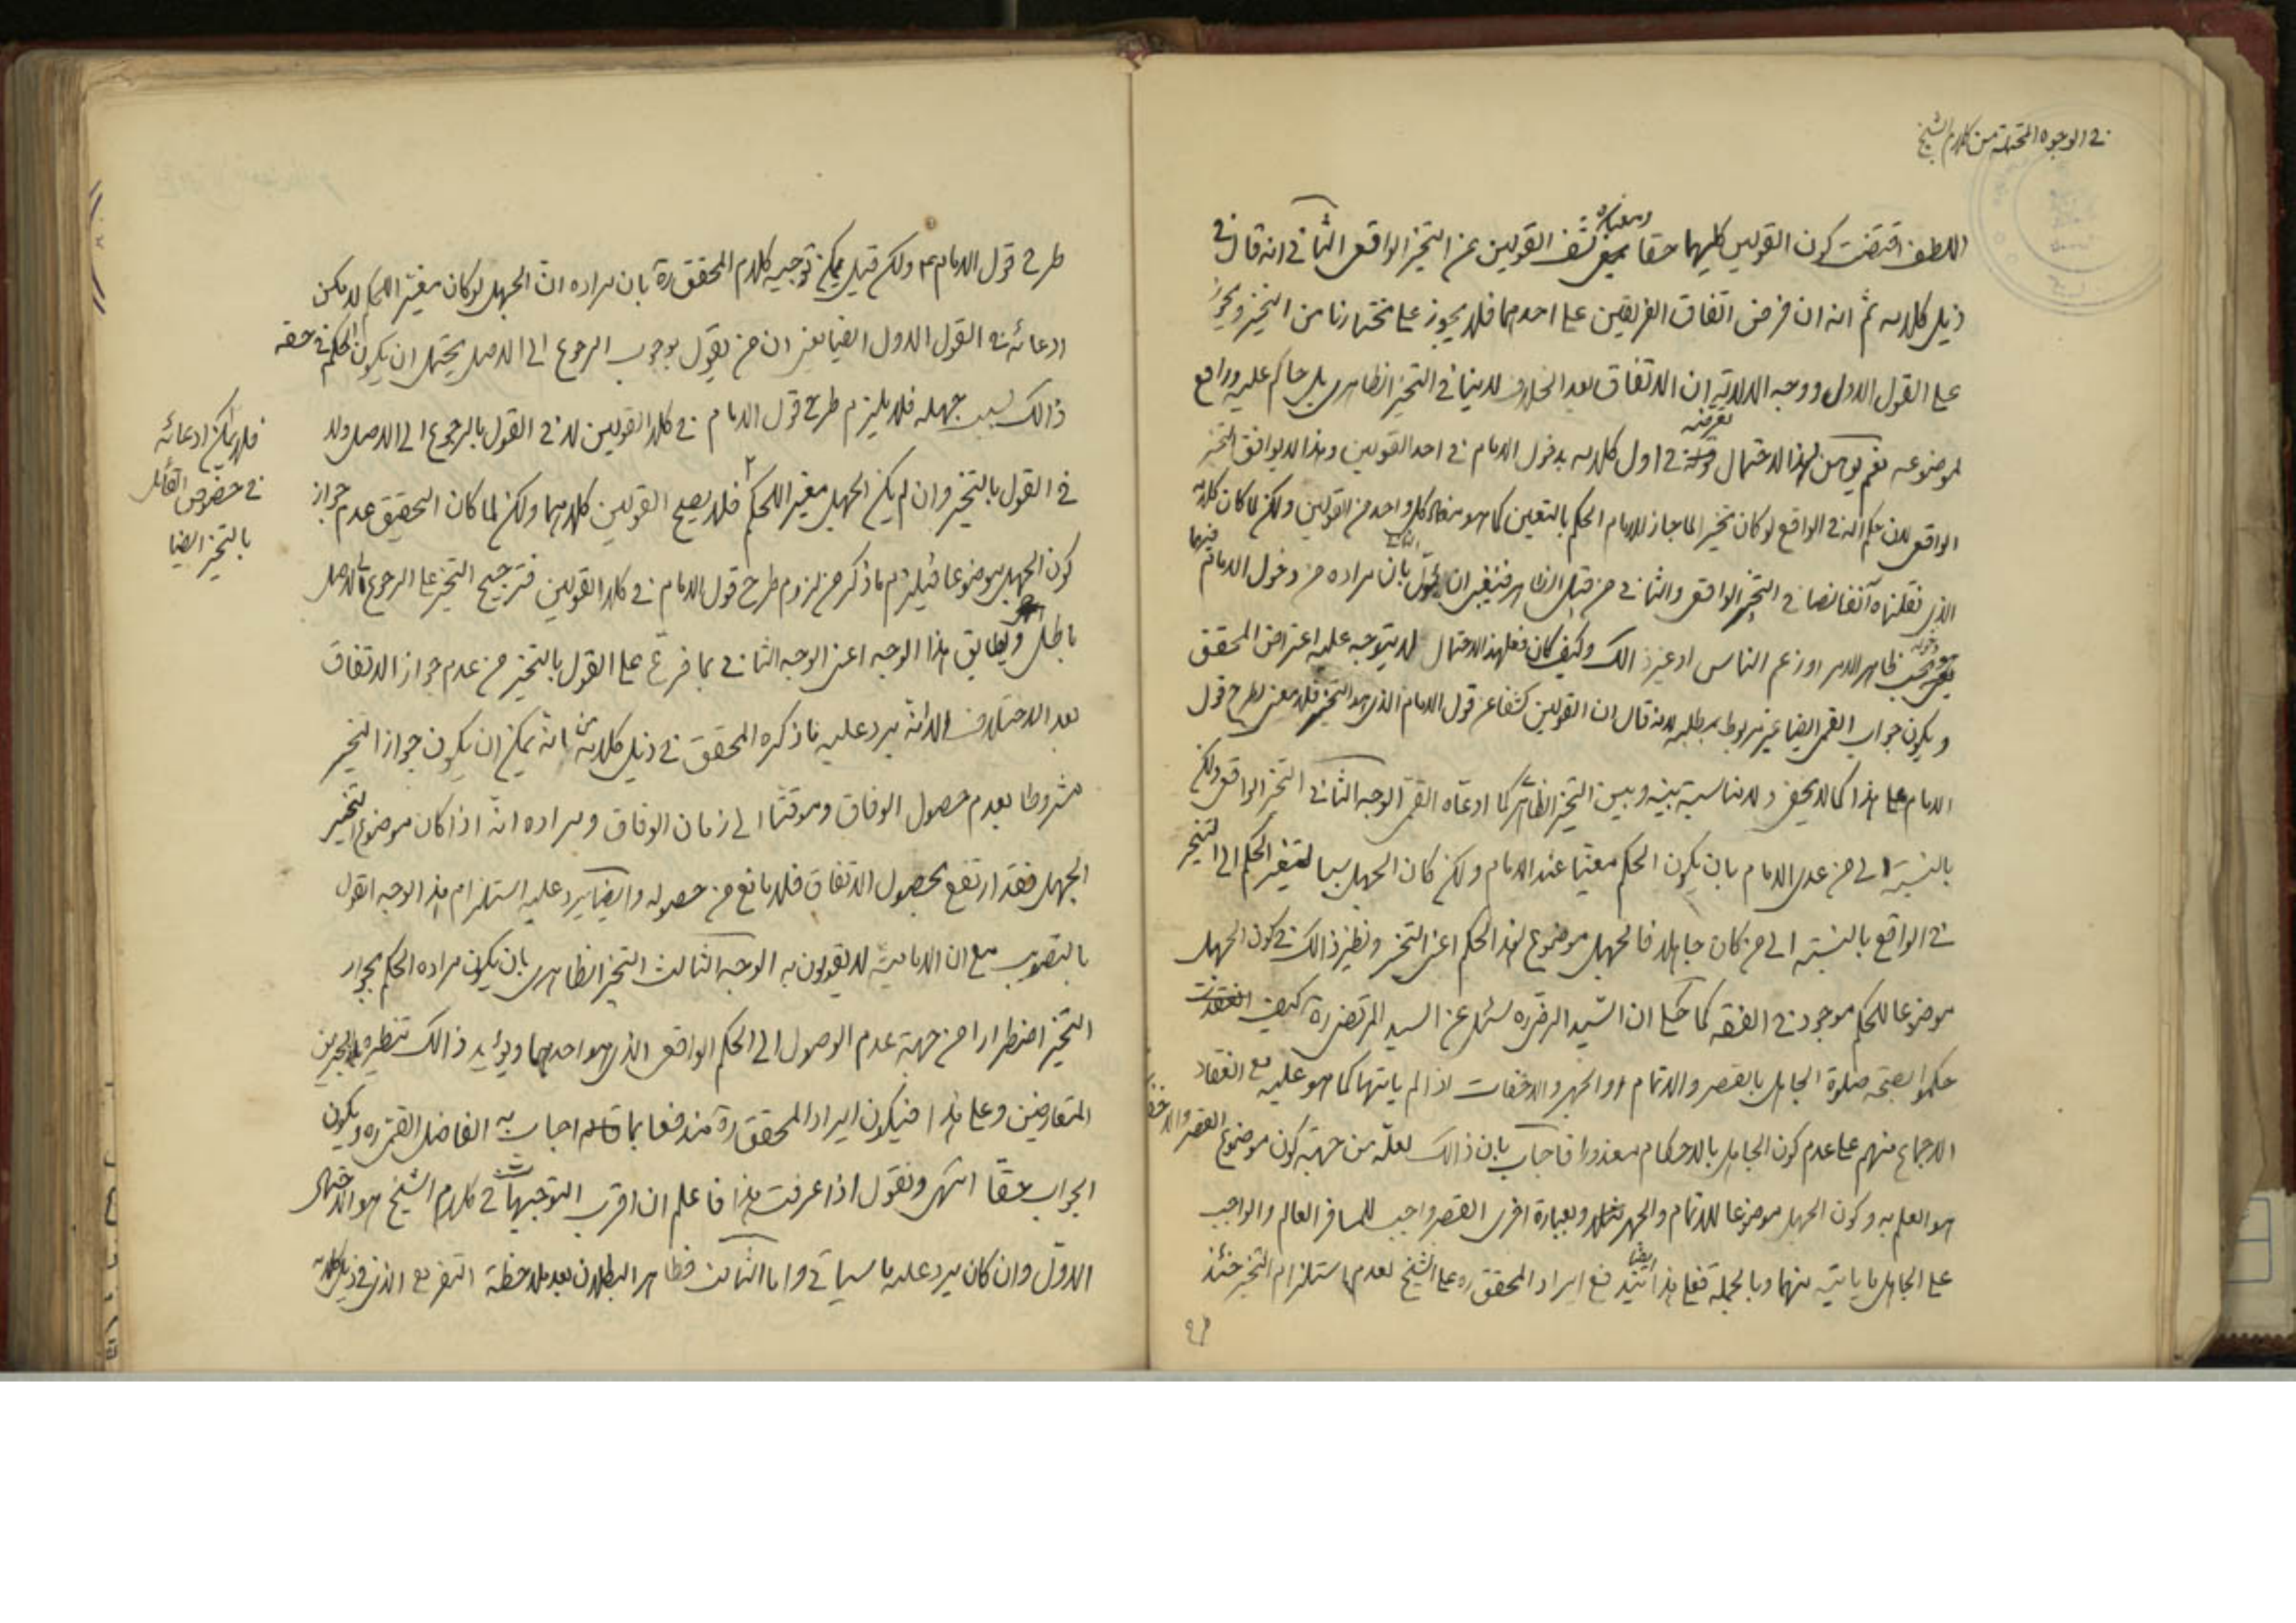 في الوجوه المحتملة من كلام الشيخ
اللطف اقتضت كون القولين كليهما حقا وبعبارة كشف القولين عن التخيير الواقعي الثاني انه قال في
ذيل كلامه ثم انه ان فرض اتفاق الفريقين على احدهما فلا يجوز على مختارنا من التخيير ويجوز
على القول الاول ووجه الدلالة ان الاتفاق بعد الخلاف لا ينافي التخيير الظاهري بل حاكم عليه ورافع
لموضوعه نعم يوهن لهذا الاحتمال تعرضه في اول كلامه بدخول الامام في احد القولين وهذا لا يوافق التخيير
الواقعي لان حكم الله في الواقع لو كان تخييرا لما جاز للامام الحكم بالتعيين كما هو مفاد كل واحد من القولين ولكن لما كان كلامه
الذي نقلناه آنفا نصا في التخيير الواقعي والثاني من قبيل الظاهر فينبغي ان يأول الثاني بان مراده من دخول الامام فيهما
دخوله بحسب ظاهر الامر او زعم الناس او غير ذالك وكيف كان فعلى هذا الاحتمال لا يتوجه عليه اعتراض المحقق
ويكون جواب القمي ايضا غير مربوط بمطلبه لانه قال ان القولين كشفا عن قول الامام الذي هو التخيير فلا معنى لطرح قول
الامام على هذا كما لا يخفى ولا مناسبة بينه وبين التخيير الظاهري كما ادعاه القمي الوجه الثاني التخيير الواقعي ولكن
بالنسبة الى من عدى الامام بان يكون الحكم معينا عند الامام ولكن كان الجهل سببا لتغير الحكم الى التخيير
في الواقع بالنسبة الى من كان جاهلا فالجهل موضوع لهذا الحكم اعني التخيير ونظير ذالك في كون الجهل
موضوعا للحكم موجود في الفقه كما حكي ان السيد الرضي ره سئل عن السيد المرتضى ره كيف
حكموا بصحة صلوة الجاهل بالقصر والاتمام او الجهر والاخفات اذا لم ياتيها كما هو عليه مع انعقاد
الاجماع منهم على عدم كون الجاهل بالاحكام معذورا فاجاب بان ذالك لعله من جهة كون موضوع القصر والاخفات
هو العلم به وكون الجهل موضوعا للاتمام والجهر مثلا وبعبارة اخرى القصر واجب للمسافر العالم والواجب
على الجاهل ما ياتيه منهما وبالجملة فعلى هذا ايضا يندفع ايراد المحقق ره على الشيخ لعدم استلزام التخيير حينئذ
طرح قول الامام ع ولكن قيل يمكن توجيه كلام المحقق ره بان مراده ان الجهل لو كان مغير الحكم لامكن
ادعائه في القول الاول ايضا يعني ان من يقول بوجوب الرجوع الى الاصل يحتمل ان يكون الحكم في حقه
ذالك بسبب جهله فلا يلزم طرح قول الامام في كلا القولين لا في القول بالرجوع الى الاصل ولا
في القول بالتخيير وان لم يكن الجهل مغير للحكم فلا يصح القولين كلاهما ولكن لما كان التحقيق عدم جواز
فلا يمكن ادعائه
في خصوص القائل
بالتخيير ايضا
كون الجهل موضوعا فيلزم ما ذكر من لزوم طرح قول الامام في كلا القولين فترجيح التخيير على الرجوع الى الاصل
باطل ويطابق هذا الوجه اعني الوجه الثاني بما فرع على القول بالتخيير من عدم جواز الاتفاق
بعد الاختلاف الا انه يرد عليه ما ذكره المحقق في ذيل كلامه انه يمكن ان يكون جواز التخيير
مشروطا بعدم حصول الوفاق وموقتا الى زمان الوفاق ومراده انه اذا كان موضوع التخيير
الجهل فقد ارتفع بحصول الاتفاق فلا مانع من حصوله وايضا يرد عليه استلزام هذا الوجه القول
بالتصويب مع ان الامامية لا يقولون به الوجه الثالث التخيير الظاهري بان يكون مراده الحكم بجواز
التخيير اضطرارا من جهة عدم الوصول الى الحكم الواقعي الذي هو احدهما ويؤيد ذالك تنظيره بالخبرين
المتعارضين وعلى هذا فيكون ايراد المحقق ره مندفعا بما اجاب به الفاضل القمي ره ويكون
الجواب حقا انتهى ونقول اذا عرفت هذا فاعلم ان اقرب التوجيهات في كلام الشيخ هو الاحتمال
الاول وان كان يرد عليه ما سياتي واما الثالث فظاهر البطلان بعد ملاحظة التفريع الذي في ذيل كلامه